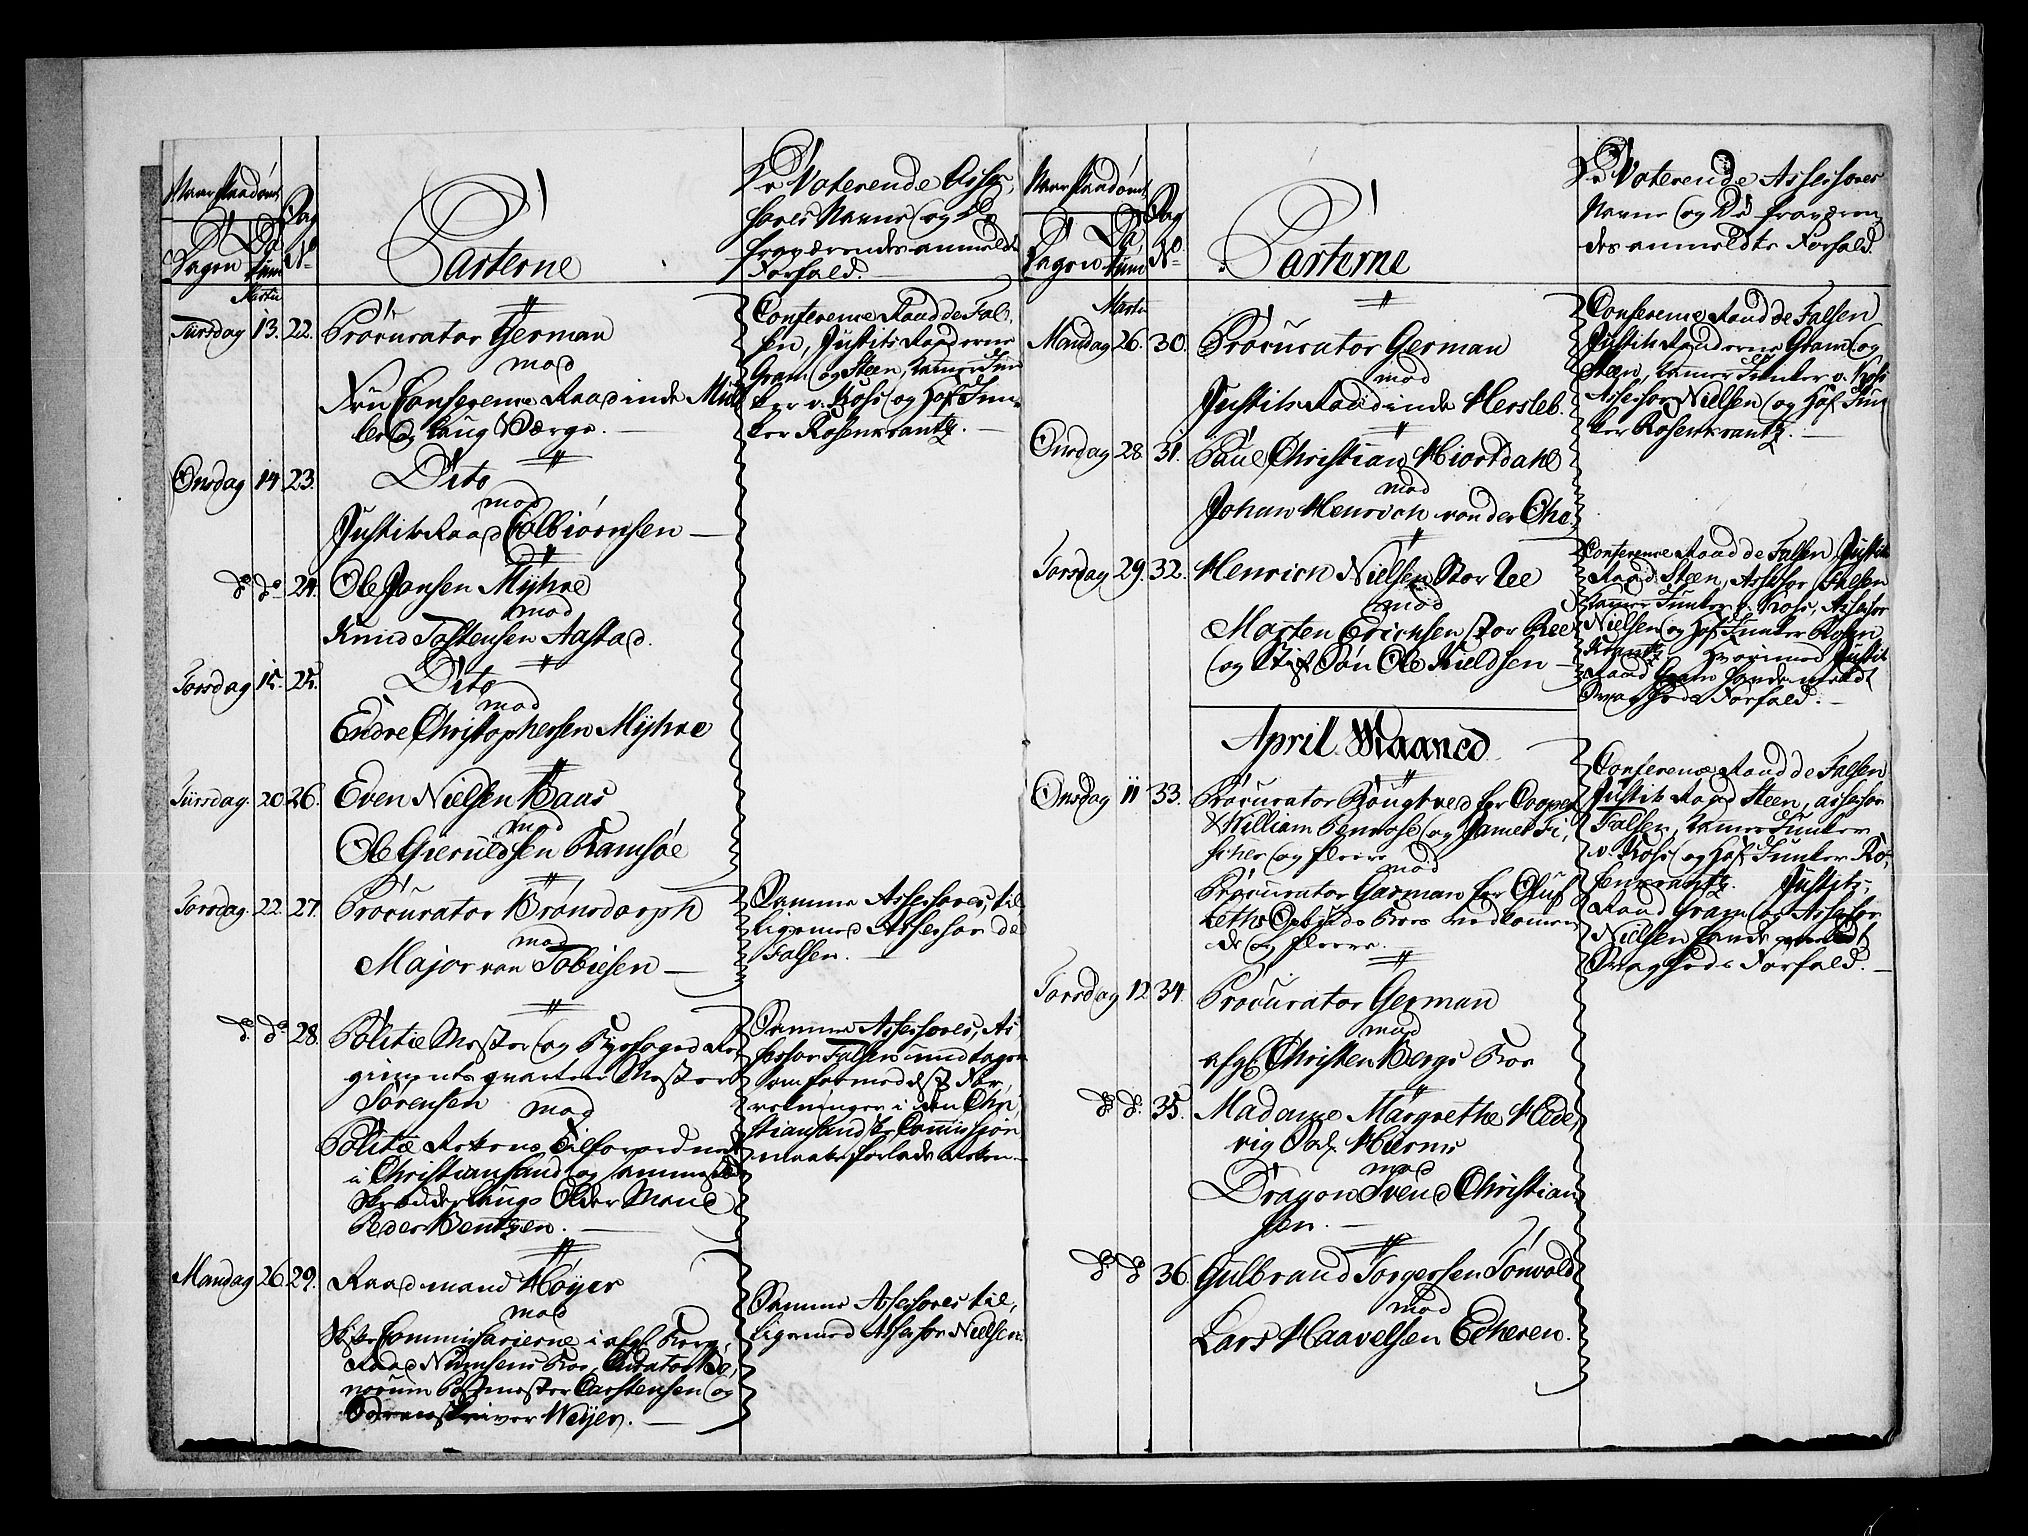 Naar Paadömt
Dagen
Da
tum
Pag
No
Parterne
De Voterende Asses,
sores Navne og De
fraværendes anmeldte
Forfald.
Martii
Tirsdag 13. 22. Procurator German
mod
Frue Conference Raadinde Mül
ler og Laug Værge.
Conference Raad de Fal,
sen, Justits Raaderne
Gram og Steen, Kammer Jun
ker v. Koss og Hof Jun
ker Rosenkrantz.
Onsdag 14. 23. Dito
mod
Justits Raad Colbiörnsen
do do 24. Ole Jansen Myhre
mod
Knud Tostensen Aastad.
Torsdag 15. 25. Dito
mod
Endre Christophersen Myhre
Tirsdag. 20. 26. Even Nielsen Baas
mod
Ole Gieruldsen Ramsöe
Torsdag. 22. 27. Procurator Brönsdorph
mod
Major von Tobiesen
Samme Assessores, til
ligemed Assessor de
Falsen.
do do 28. Politie Mester og Byefoged Re
giments qvarteer Mester
Sörensen mod
Politie Rettens Tilforordnede
i Christiansand og samme
Skrædder Laugs Older Mand
Peder Bentzen.
Samme Assessores, As
sessor Falsen undtagen
som formedelst For,
retninger i den Chri
stiansandske Commission
maatte forlade Retten.
Mandag 26. 29. Raadmand Höyer
mod
Skifte Commissarierne i afgl. Krigs,
Raad Nimsens Boe, Curator Bo,
norum Postmester Carstensen og
Sorenskriver Weyer.
Samme Assessores til,
ligemed Assessor Nielsen.
Naar Paadömt
Dagen
Da
tum
Pag
No
Parterne
De Voterende Assessores
Navne og De fraværen
des anmeldte Forfald.
Martii
Mandag 26. 30. Procurator German
mod
Justits Raadinde Hersleb.
Conference Raad de Falsen
Justits Raaderne Gram og
Steen, Kammer Junker v. Koss
Assessor Nielsen og Hof Jun
ker Rosenkrantz.
Onsdag 28. 31. Paul Christian Hiortdahl
mod
Johan Henrich von der Ohe
Torsdag 29. 32. Henrich Nielsen Stor Ree
mod
Morten Erichsen stor Ree
og Stif Sön Ole Kieldsen
Conference Raad de Falsen, Justits
Raad Steen, Assessor Falsen
Kammer Junker v. Koss, Assessor
Nielsen og Hof Junker Rosen,
krantz Hvorimod Justits
Raad Gram havde meldt
Svagheds Forfald.
April Maaned.
Onsdag 11 33. Procurator Bougtved for Cooper
William Penrose og James Fi,
scher og fleere
mod
Procurator German for Oluf
Leths Opbuds Boes vedkommen
de og fleere.
Conference Raad de Falsen
Justits Raad Steen, assessor
Falsen, Kammer Junker
v. Koss og Hof Junker Ro,
senkrantz. Justits,
Raad Gram og Assessor
Nielsen havde meldt
Svagheds Forfald.
Torsdag 12 34. Procurator German
mod
afgl. Christen Bergs Boe
do do 35. Madame Margrethe Hede,
vig Sal. Hiorms
mod
Dragon Svend Christian
sen.
do do 36. Gulbrand Torgersen Tönvold
mod
Lars Haavelsen Echeren.